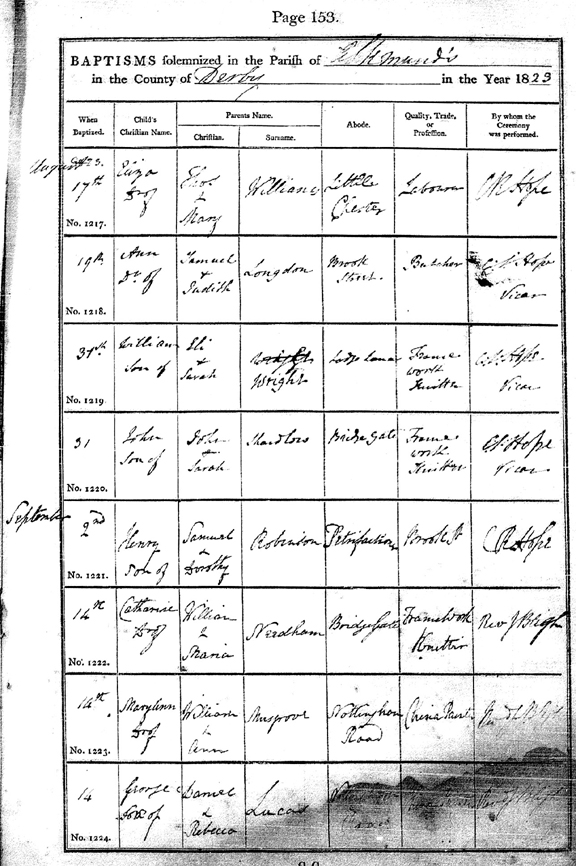 Page 153.
BAPTISMS solemnized in the Parish of St Alkmund's
in the County of Derby in the Year 1823
When Baptized. Child's Christian Name. Parents Name. Christian. Surname. Abode. Quality, Trade, or Profession. By whom the Ceremony was performed.
August 1823.
17th Eliza D of & Mary Williams Little Chester Labourer C R Hope
No. 1217.
19th Ann Dr of Samuel & Judith Longdon Brook Street Butcher Hope Vicar
No. 1218.
31st William Son of Eli & Sarah Wright Wright Lodge Lane Frame work Knitter Hope Vicar
No. 1219.
31 John Son of John & Sarah Hardlow Bridge Gate Frame work Knitter Hope Vicar
No. 1220.
September
2nd Henry Son of Samuel & Dorothy Robinson Petrifactioner Brook St C R Hope
No. 1221.
14th Catharine D of William & Maria Needham Bridge Gate Framework Knitter Rev J Bligh
No. 1222.
14th Mary Ann D of William & Ann Musgrove Nottingham Road China
No. 1223.
14 George Son of Daniel & Rebecca Lucas
No. 1224.